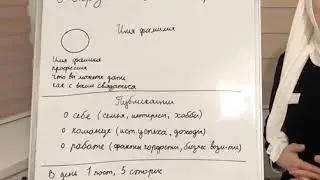 Имя фамилия
Имя фамилия
профессия
что вы можете дать
как с вами связаться
Публикации
о себе (семья, интересы, хобби)
о команде (ист. успеха, доходы)
о работе (факты гордости, бизнес возм-ти)
В день 1 пост, 5 сторис